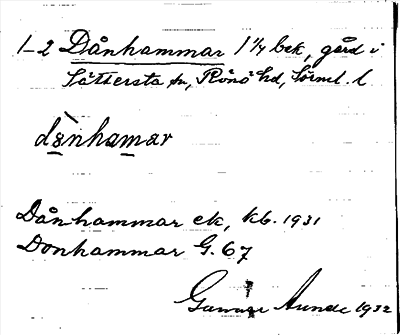 1-2 Dånhammar 1 1/4 bek, gård i
Sättersta sn, Rönö hd, Sörml. l.
dònhamar
Dånhammar ek, kb. 1931
Donhammar G. 67
Gunnar Linde 1932